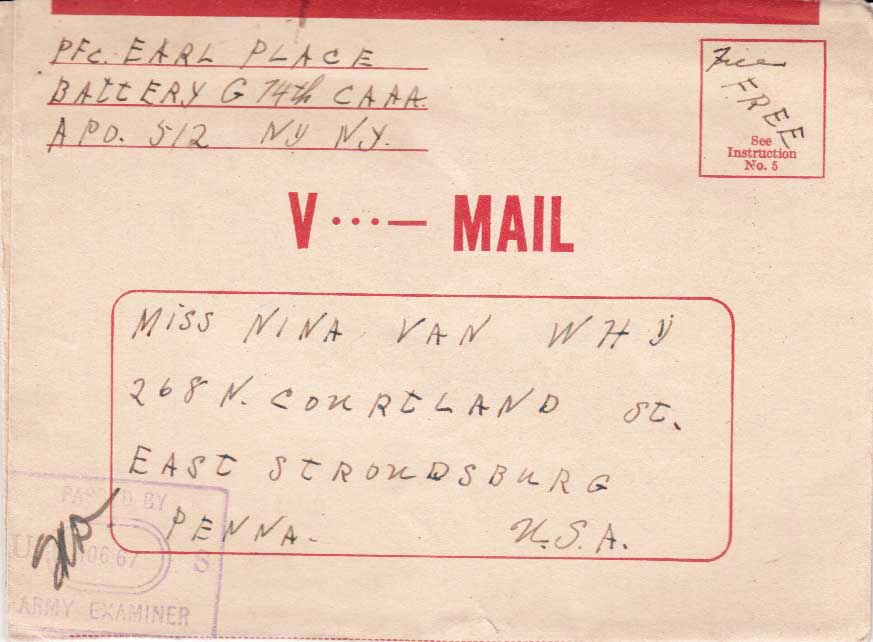 PFC. EARL PLACE
BATTERY G 74th CAAA.
APO. 512 NY NY.
Free
FREE
See
Instruction
No. 5
V ...— MAIL
MISS NINA VAN WHY
268 N. COURTLAND ST.
EAST STROUDSBURG
PENNA. U.S.A.
PASSED BY
U S
ARMY EXAMINER